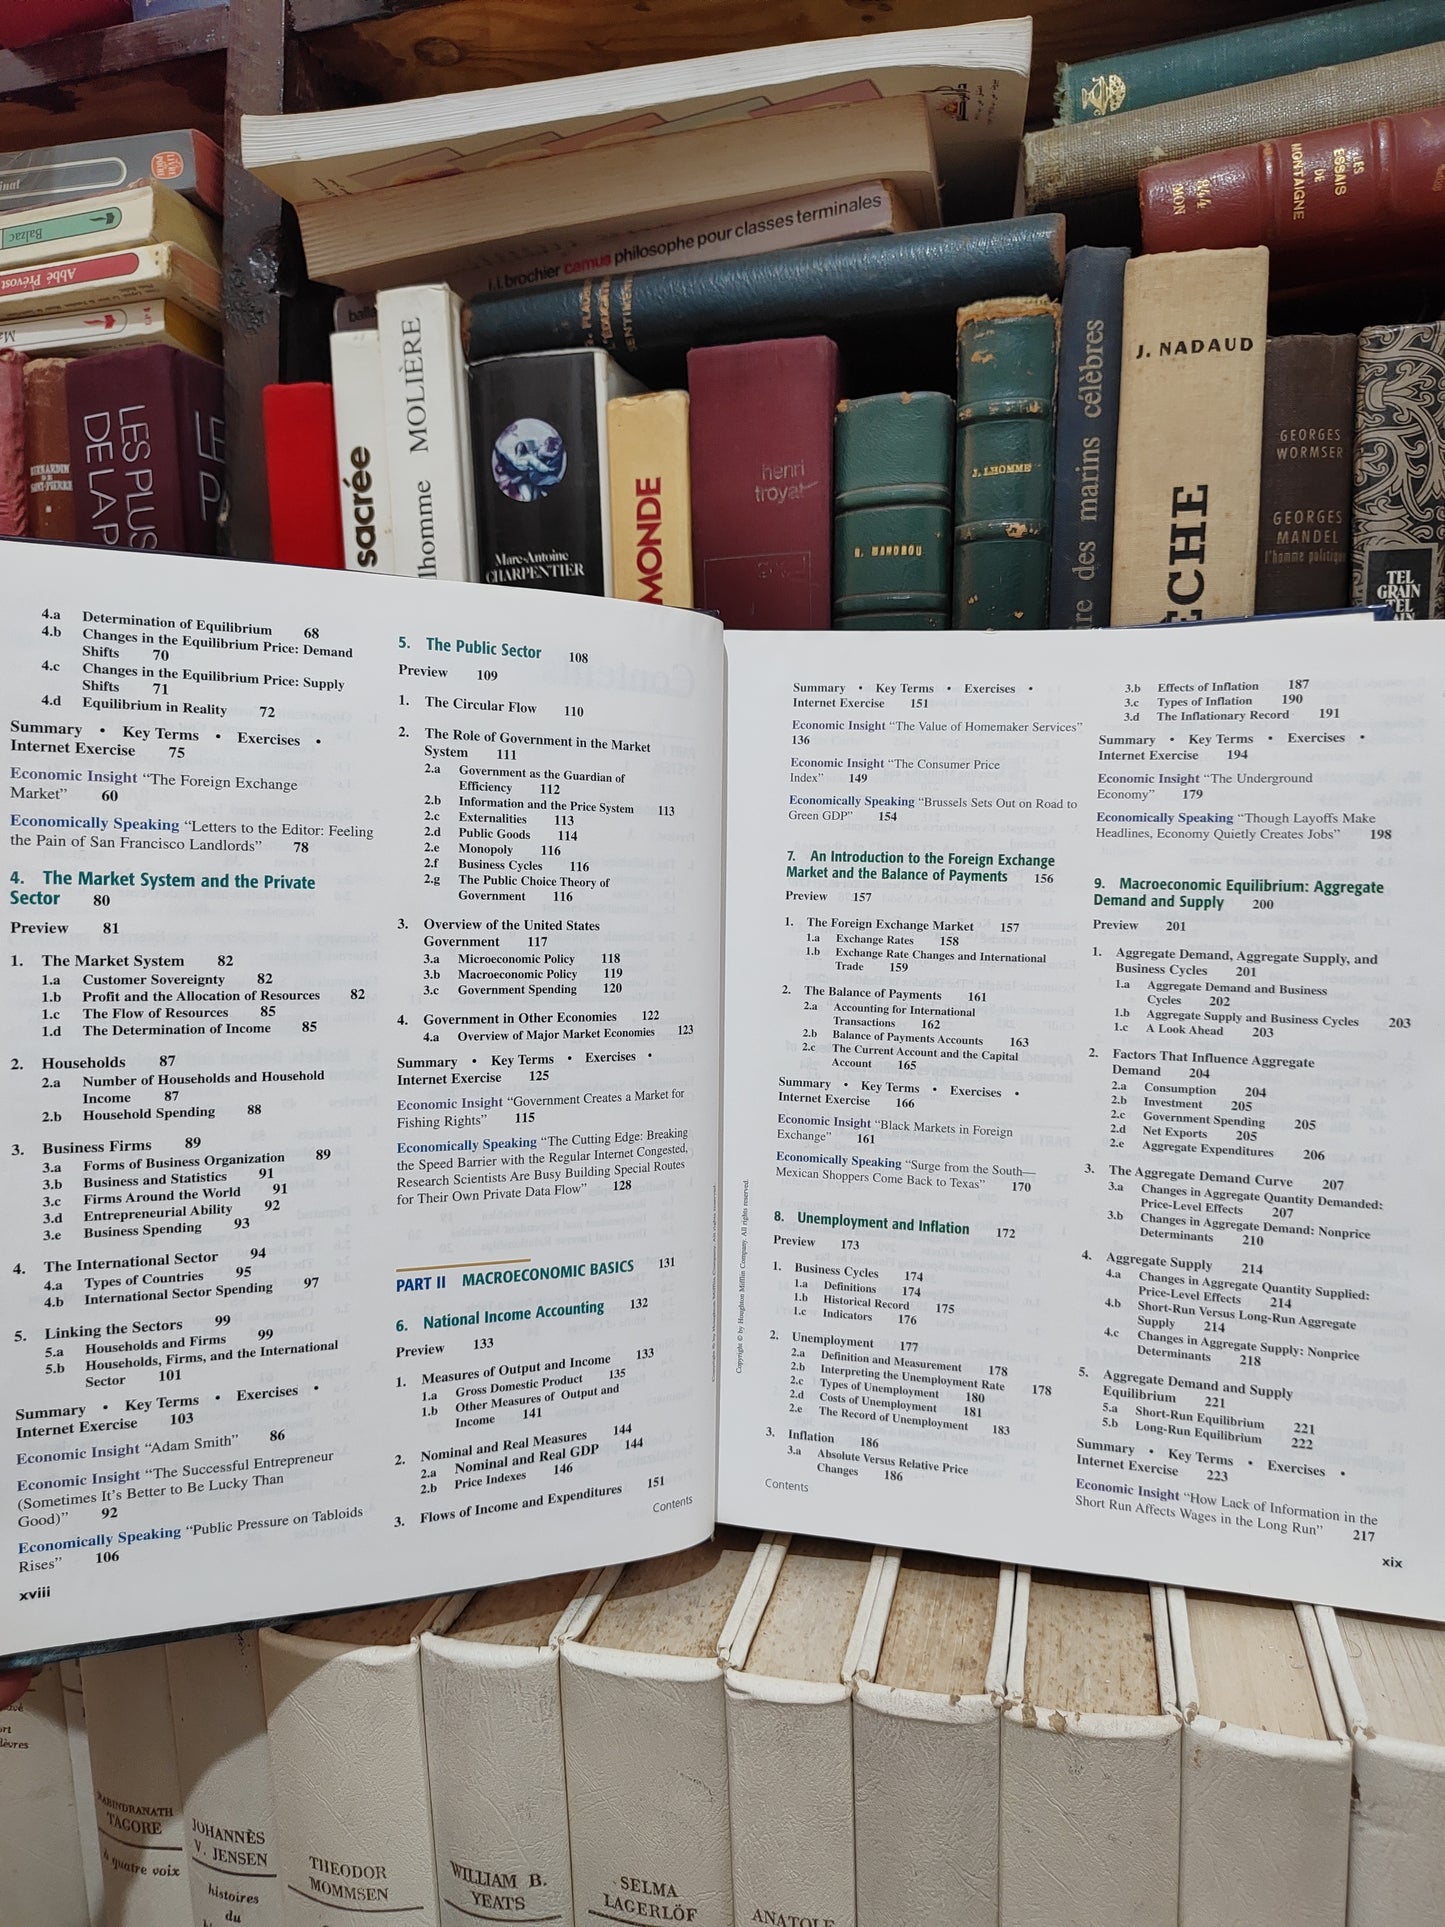 Balzac
Abbé Prévost
LES PLUS
DE LA P
BERNARDIN
DE
SAINT-PIERRE
j.j. brochier camus philosophe pour classes terminales
sacrée
lhomme MOLIÈRE
Marc-Antoine
CHARPENTIER
MONDE
henri
troyat
R. MANDROU
J. LHOMME
re des marins célèbres
J. NADAUD
ECHE
GEORGES
WORMSER
GEORGES
MANDEL
l'homme politique
TEL
GRAIN
TEL
LES
ESSAIS
DE
MONTAIGNE
844
MON
4.a Determination of Equilibrium 68
4.b Changes in the Equilibrium Price: Demand
Shifts 70
4.c Changes in the Equilibrium Price: Supply
Shifts 71
4.d Equilibrium in Reality 72
Summary • Key Terms • Exercises •
Internet Exercise 75
Economic Insight “The Foreign Exchange
Market” 60
Economically Speaking “Letters to the Editor: Feeling
the Pain of San Francisco Landlords” 78
4. The Market System and the Private
Sector 80
Preview 81
1. The Market System 82
1.a Customer Sovereignty 82
1.b Profit and the Allocation of Resources 82
1.c The Flow of Resources 85
1.d The Determination of Income 85
2. Households 87
2.a Number of Households and Household
Income 87
2.b Household Spending 88
3. Business Firms 89
3.a Forms of Business Organization 89
3.b Business and Statistics 91
3.c Firms Around the World 91
3.d Entrepreneurial Ability 92
3.e Business Spending 93
4. The International Sector 94
4.a Types of Countries 95
4.b International Sector Spending 97
5. Linking the Sectors 99
5.a Households and Firms 99
5.b Households, Firms, and the International
Sector 101
Summary • Key Terms • Exercises •
Internet Exercise 103
Economic Insight “Adam Smith” 86
Economic Insight “The Successful Entrepreneur
(Sometimes It’s Better to Be Lucky Than
Good)” 92
Economically Speaking “Public Pressure on Tabloids
Rises” 106
xviii
5. The Public Sector 108
Preview 109
1. The Circular Flow 110
2. The Role of Government in the Market
System 111
2.a Government as the Guardian of
Efficiency 112
2.b Information and the Price System 113
2.c Externalities 113
2.d Public Goods 114
2.e Monopoly 116
2.f Business Cycles 116
2.g The Public Choice Theory of
Government 116
3. Overview of the United States
Government 117
3.a Microeconomic Policy 118
3.b Macroeconomic Policy 119
3.c Government Spending 120
4. Government in Other Economies 122
4.a Overview of Major Market Economies 123
Summary • Key Terms • Exercises •
Internet Exercise 125
Economic Insight “Government Creates a Market for
Fishing Rights” 115
Economically Speaking “The Cutting Edge: Breaking
the Speed Barrier with the Regular Internet Congested,
Research Scientists Are Busy Building Special Routes
for Their Own Private Data Flow” 128
PART II MACROECONOMIC BASICS 131
6. National Income Accounting 132
Preview 133
1. Measures of Output and Income 133
1.a Gross Domestic Product 135
1.b Other Measures of Output and
Income 141
2. Nominal and Real Measures 144
2.a Nominal and Real GDP 144
2.b Price Indexes 146
3. Flows of Income and Expenditures 151
Contents
Copyright © by Houghton Mifflin Company. All rights reserved.
Copyright © by Houghton Mifflin Company. All rights reserved.
Summary • Key Terms • Exercises •
Internet Exercise 151
Economic Insight “The Value of Homemaker Services”
136
Economic Insight “The Consumer Price
Index” 149
Economically Speaking “Brussels Sets Out on Road to
Green GDP” 154
7. An Introduction to the Foreign Exchange
Market and the Balance of Payments 156
Preview 157
1. The Foreign Exchange Market 157
1.a Exchange Rates 158
1.b Exchange Rate Changes and International
Trade 159
2. The Balance of Payments 161
2.a Accounting for International
Transactions 162
2.b Balance of Payments Accounts 163
2.c The Current Account and the Capital
Account 165
Summary • Key Terms • Exercises •
Internet Exercise 166
Economic Insight “Black Markets in Foreign
Exchange” 161
Economically Speaking “Surge from the South—
Mexican Shoppers Come Back to Texas” 170
8. Unemployment and Inflation 172
Preview 173
1. Business Cycles 174
1.a Definitions 174
1.b Historical Record 175
1.c Indicators 176
2. Unemployment 177
2.a Definition and Measurement 178
2.b Interpreting the Unemployment Rate 178
2.c Types of Unemployment 180
2.d Costs of Unemployment 181
2.e The Record of Unemployment 183
3. Inflation 186
3.a Absolute Versus Relative Price
Changes 186
Contents
3.b Effects of Inflation 187
3.c Types of Inflation 190
3.d The Inflationary Record 191
Summary • Key Terms • Exercises •
Internet Exercise 194
Economic Insight “The Underground
Economy” 179
Economically Speaking “Though Layoffs Make
Headlines, Economy Quietly Creates Jobs” 198
9. Macroeconomic Equilibrium: Aggregate
Demand and Supply 200
Preview 201
1. Aggregate Demand, Aggregate Supply, and
Business Cycles 201
1.a Aggregate Demand and Business
Cycles 202
1.b Aggregate Supply and Business Cycles 203
1.c A Look Ahead 203
2. Factors That Influence Aggregate
Demand 204
2.a Consumption 204
2.b Investment 205
2.c Government Spending 205
2.d Net Exports 205
2.e Aggregate Expenditures 206
3. The Aggregate Demand Curve 207
3.a Changes in Aggregate Quantity Demanded:
Price-Level Effects 207
3.b Changes in Aggregate Demand: Nonprice
Determinants 210
4. Aggregate Supply 214
4.a Changes in Aggregate Quantity Supplied:
Price-Level Effects 214
4.b Short-Run Versus Long-Run Aggregate
Supply 214
4.c Changes in Aggregate Supply: Nonprice
Determinants 218
5. Aggregate Demand and Supply
Equilibrium 221
5.a Short-Run Equilibrium 221
5.b Long-Run Equilibrium 222
Summary • Key Terms • Exercises •
Internet Exercise 223
Economic Insight “How Lack of Information in the
Short Run Affects Wages in the Long Run” 217
xix
RABINDRANATH
TAGORE
à quatre voix
JOHANNÈS
V. JENSEN
histoires
du
THEODOR
MOMMSEN
WILLIAM B.
YEATS
SELMA
LAGERLÖF
ANATOLE